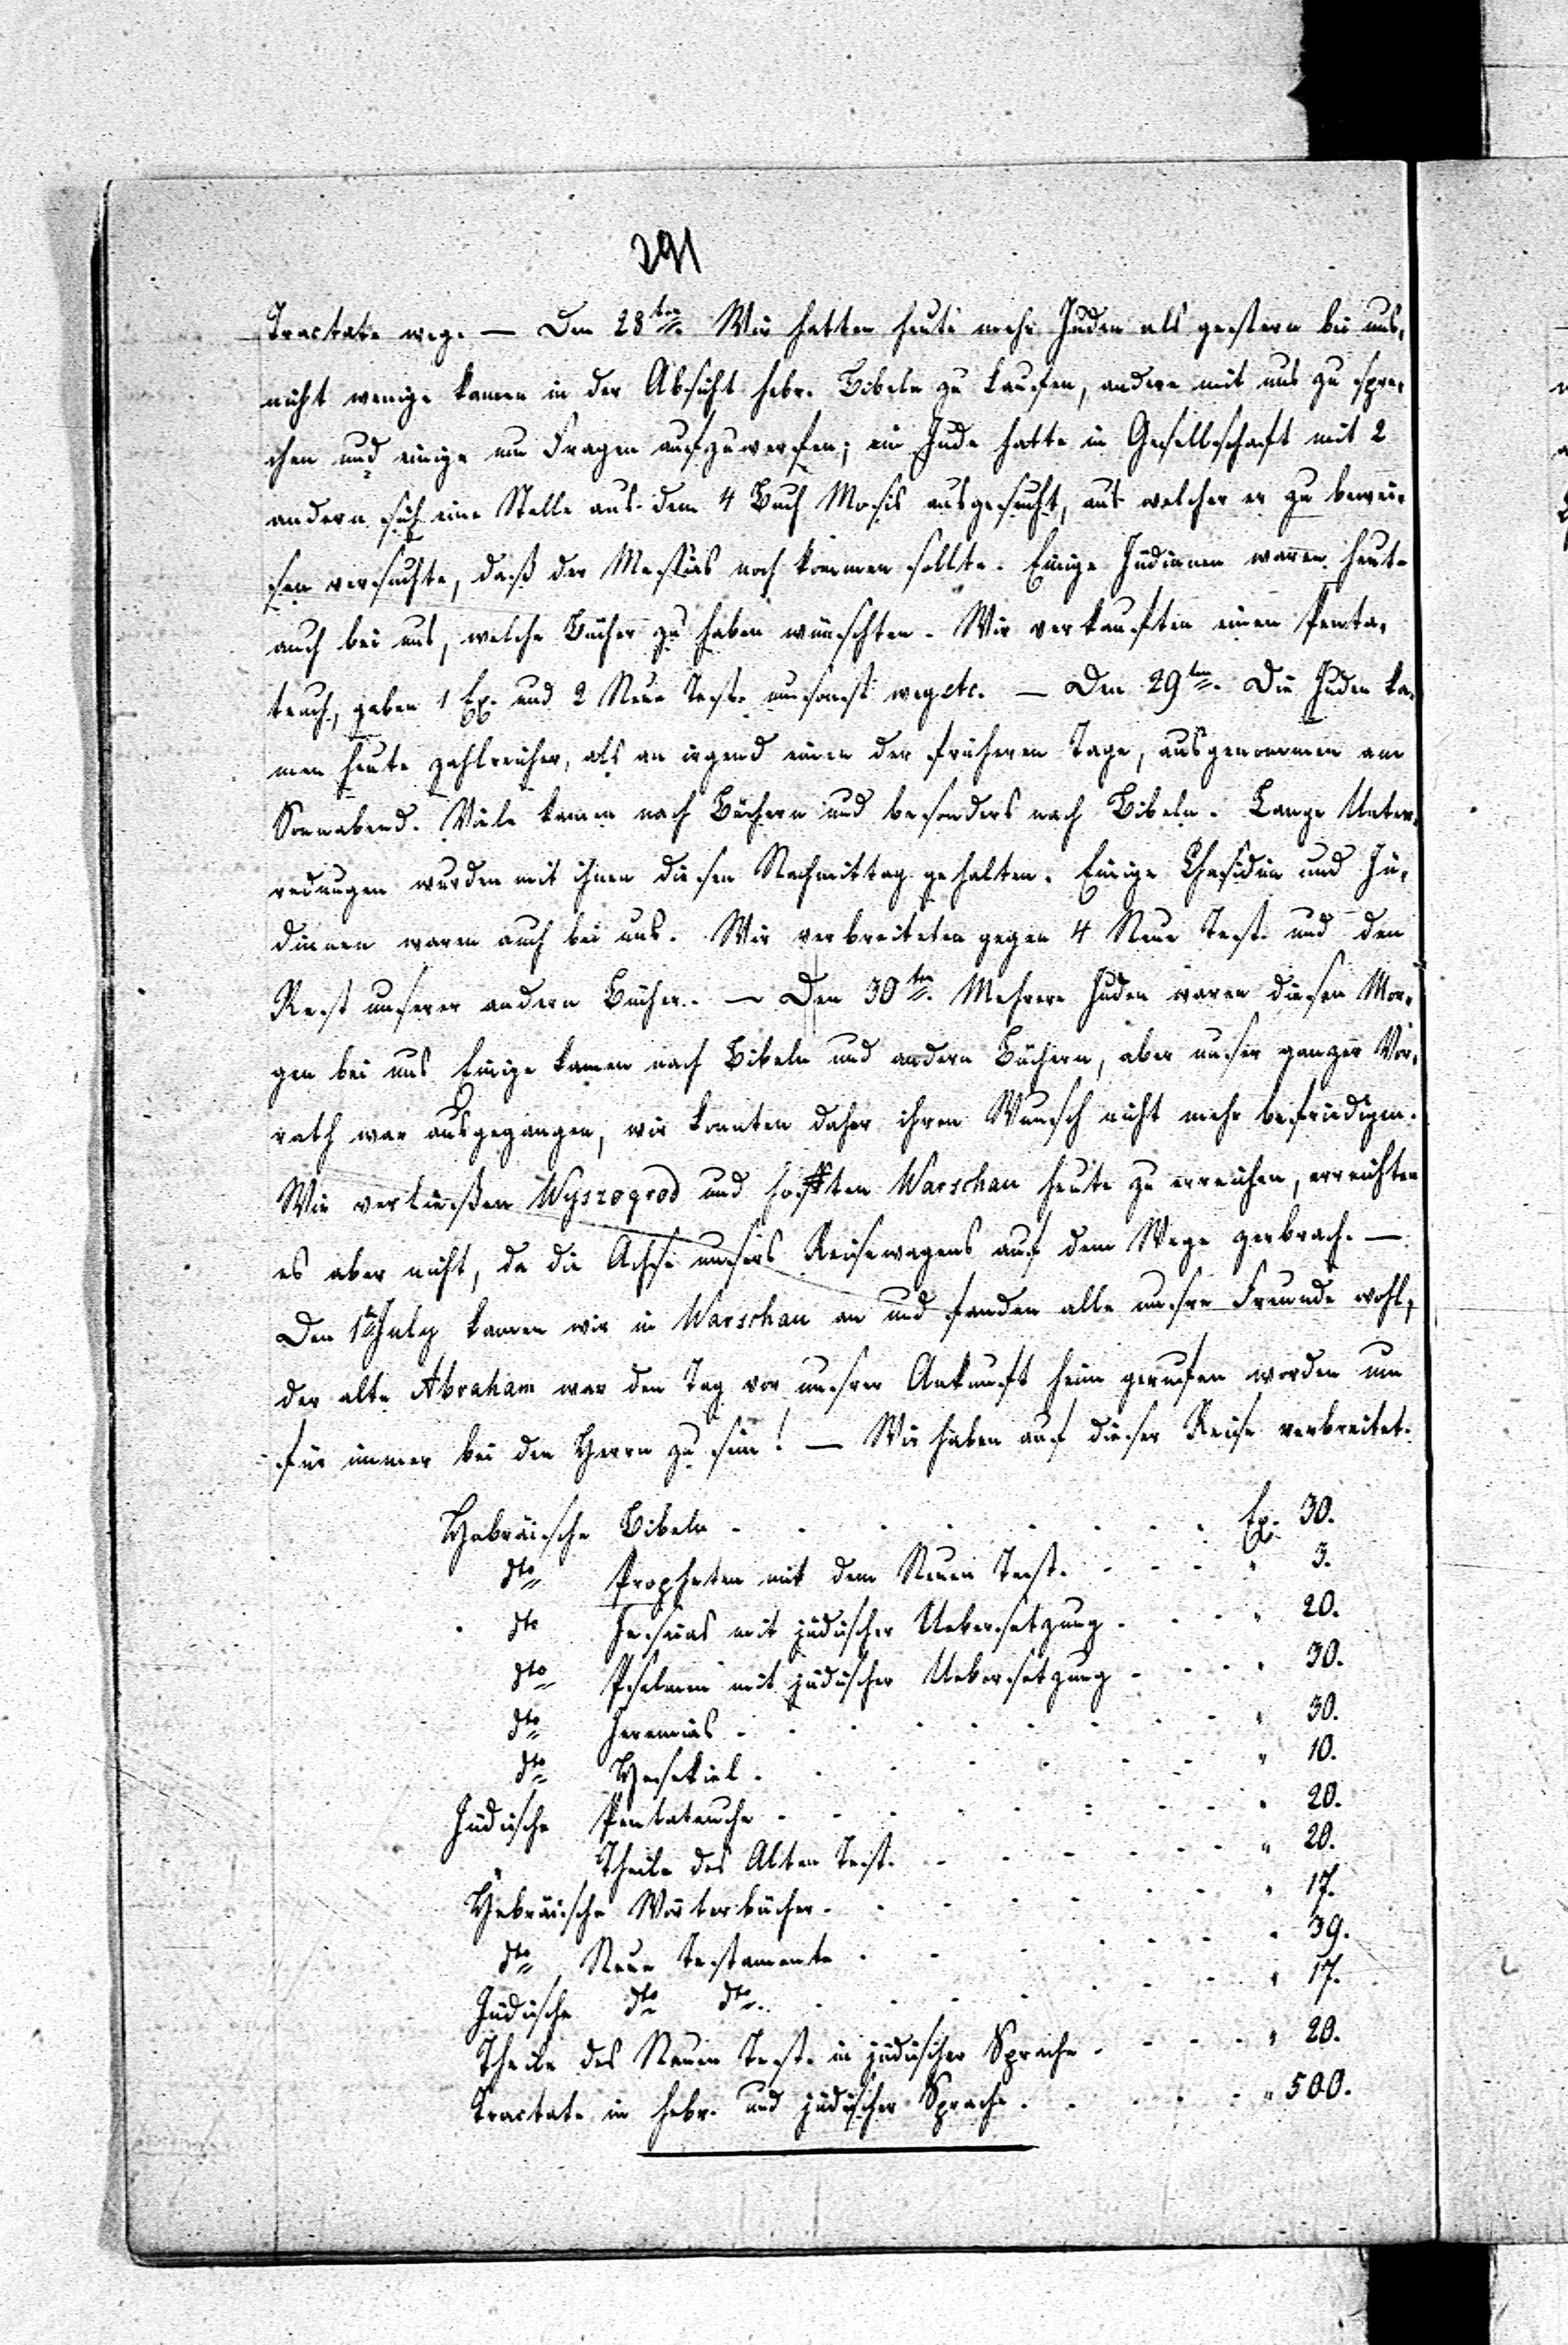 291
Tractate weg. — Den 28ten. Wir hatten heute mehr Juden als gestern bei uns,
nicht wenige kamen in der Absicht hebr. Bibeln zu kaufen, andere mit uns zu spre-
chen und einige um Fragen aufzuwerfen; ein Jude hatte in Gesellschaft mit 2
andern sich eine Stelle aus dem 4 Buch Mosis ausgesucht, aus welcher er zu bewei-
sen versuchte, daß der Messias noch kommen sollte. Einige Jüdinnen waren heute
auch bei uns, welche Bücher zu haben wünschten. Wir verkauften einen Penta-
teuch, gaben 1 Ex. und 2 Neue Test. umsonst weg etc. — Den 29ten. Die Juden ka-
men heute zahlreicher, als an irgend einen der früheren Tage, ausgenommen am
Sonnabend. Viele kamen nach Büchern und besonders nach Bibeln. Lange Unter-
redungen wurden mit ihnen diesen Nachmittag gehalten. Einige Chasidim und Jü-
dinnen waren auch bei uns. Wir verbreiteten gegen 4 Neue Test. und den
Rest unserer andern Bücher. — Den 30ten. Mehrere Juden waren diesen Mor-
gen bei uns Einige kamen nach Bibeln und andern Büchern, aber unser ganzer Vor-
rath war ausgegangen, wir konnten daher ihren Wunsch nicht mehr befriedigen.
Wir verließen Wyszogrod und hofften Warschau heute zu erreichen, erreichten
es aber nicht, da die Achse unsers Reisewagens auf dem Wege zerbrach. —
Den 1ten July kamen wir in Warschau an und fanden alle unsre Freunde wohl,
der alte Abraham war den Tag vor unsrer Ankunft heim gerufen worden um
für immer bei den Herrn zu sein! — Wir haben auf dieser Reise verbreitet.
Hebräische Bibeln . . . . . . . . Ex. 30.
dto Propheten mit dem Neuen Test. . . . " 3.
dto Jesaias mit jüdischer Uebersetzung . . . " 20.
dto Psalmen mit jüdischer Uebersetzung . . . " 30.
dto Jeremias . . . . . . . . " 30.
dto Hesekiel . . . . . . . . " 10.
Jüdische Pentateuche . . . . . . . " 20.
" Theile des Alten Test. . . . . . " 20.
Hebräische Wörterbücher . . . . . . " 17.
dto Neue Testamente . . . . . . " 39.
Jüdische dto dto. . . . . . . " 17.
Theile des Neuen Test. in jüdischer Sprache . . . . " 20.
Tractate in hebr. und jüdischer Sprache . . . . " 500.